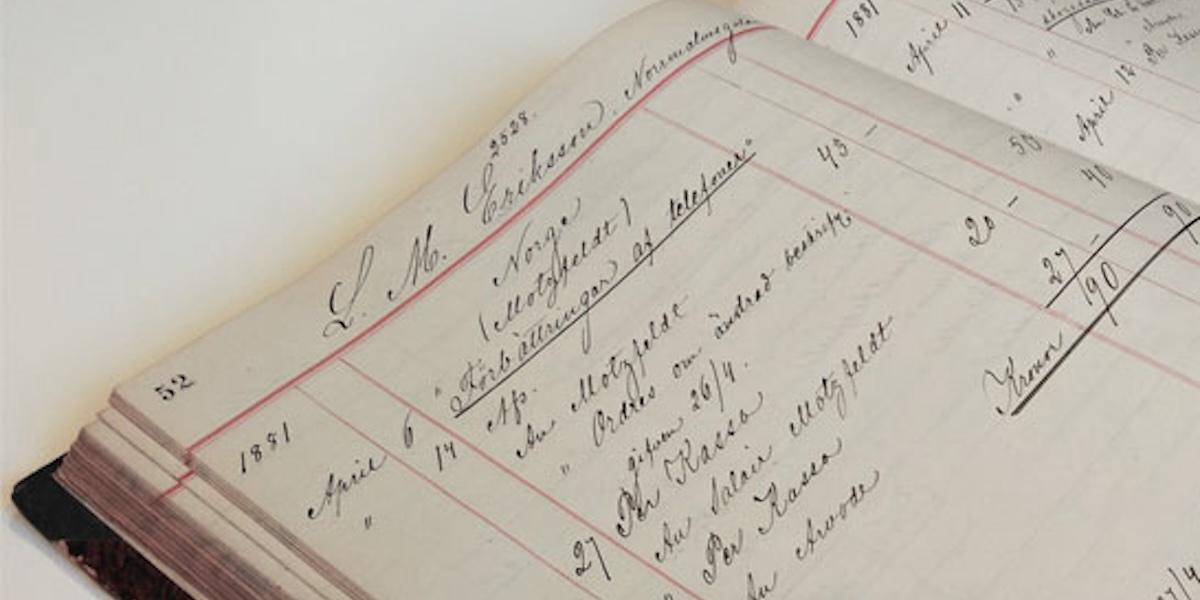 52
2528.
L. M. Eriksson, Norrmalmsg
Norge
(Motzfeldt)
"Förbättringar af telefoner"
1881
April 6 Afs. 45 -
" 14 An Motzfeldt
" Ordres om ändrad beskrifn.
gifven 26/4.
27 Per Kassa 20 -
An Salair Motzfeldt
Per Kassa 27 -
" An Arvode
50
40
90
Kronor 90
1881
April 11
" "
April 12